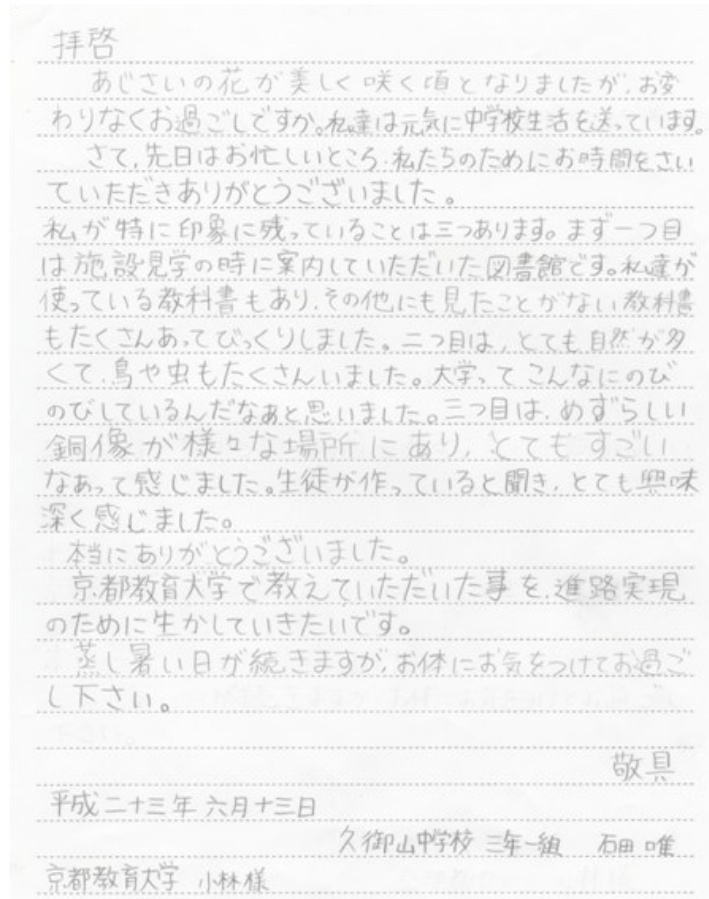 拝啓
あじさいの花が美しく咲く頃となりましたが、お変
わりなくお過ごしですか。私達は元気に中学校生活を送っています。
さて、先日はお忙しいところ、私たちのためにお時間をさい
ていただきありがとうございました。
私が特に印象に残っていることは三つあります。まず一つ目
は施設見学の時に案内していただいた図書館です。私達が
使っている教科書もあり、その他にも見たことがない教科書
もたくさんあってびっくりしました。二つ目は、とても自然が多
くて、鳥や虫もたくさんいました。大学ってこんなにのび
のびしているんだなぁと思いました。三つ目は、めずらしい
銅像が様々な場所にあり、とてもすごい
なあって感じました。生徒が作っていると聞き、とても興味
深く感じました。
本当にありがとうございました。
京都教育大学で教えていただいた事を、進路実現
のために生かしていきたいです。
蒸し暑い日が続きますが、お体にお気をつけてお過ご
し下さい。
敬具
平成二十三年六月十三日
久御山中学校 三年一組 石田唯
京都教育大学 小林様